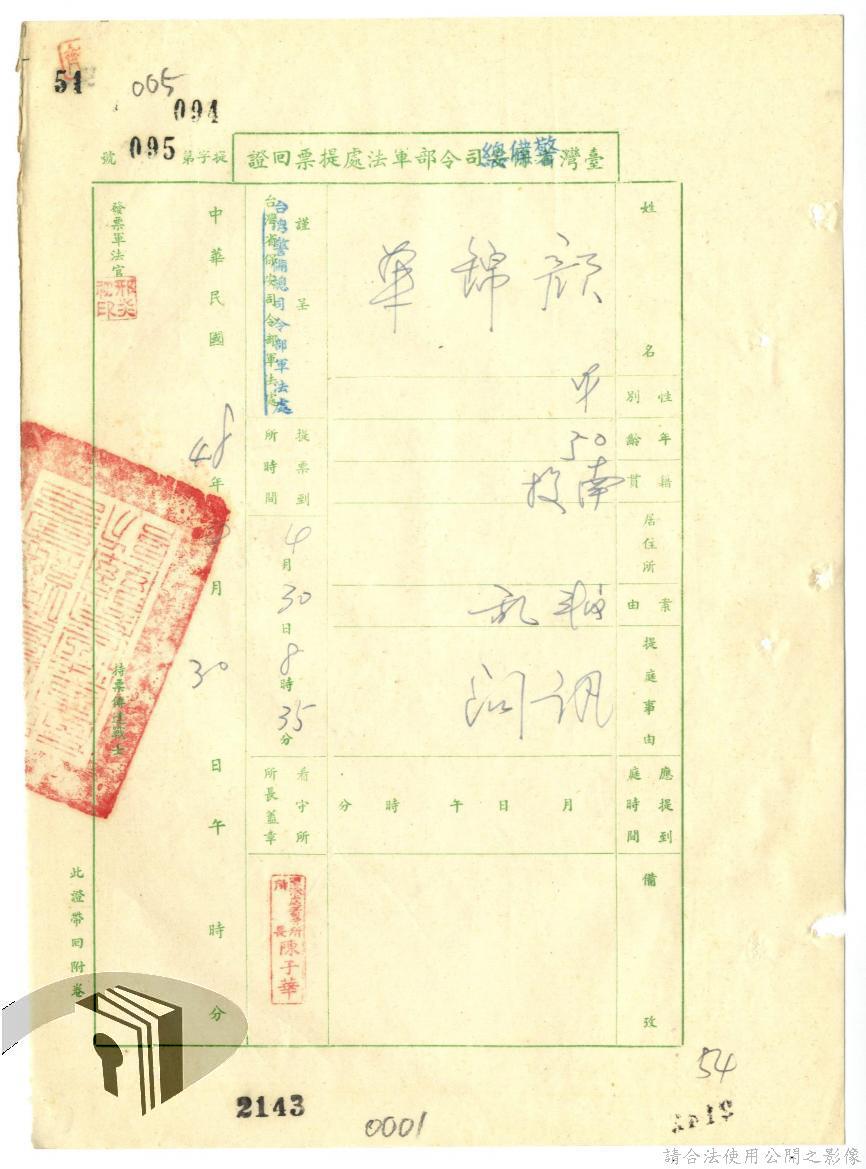 51
005
094
號 095 提字第
臺灣警備總司令部軍法處提票回證
姓名
顏錦華
性別
年齡
50
籍貫
南投
居住所
案由
叛亂
提庭事由
訊問
應提到庭時間
月 日 午 時 分
備攷
謹呈
台灣省保安司令部軍法處
台灣警備總司令部軍法處
提票到所時間
4月30日8時35分
看守所所長蓋章
陳子華
中華民國48年 月30日午 時 分
發票軍法官
持票傳達戰士
此證帶回附卷
2143
0001
54
請合法使用公開之影像